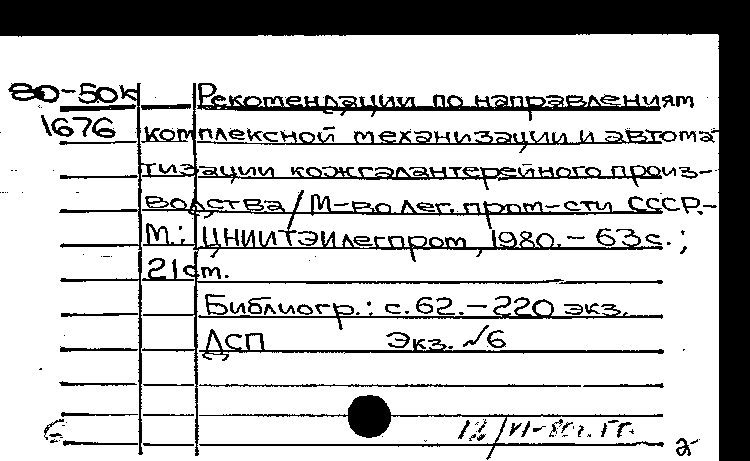 80-50к Рекомендации по направлениям
1676 комплексной механизации и автома-
тизации кожгалантерейного произ-
водства / М-во лег. пром-сти СССР.-
М.: ЦНИИТЭИлегпром, 1980.- 63с.;
21 см.
Библиогр.: с. 62.- 220 экз.
ДСП Экз. №6
6 12/VI-80г. ГГ.
2